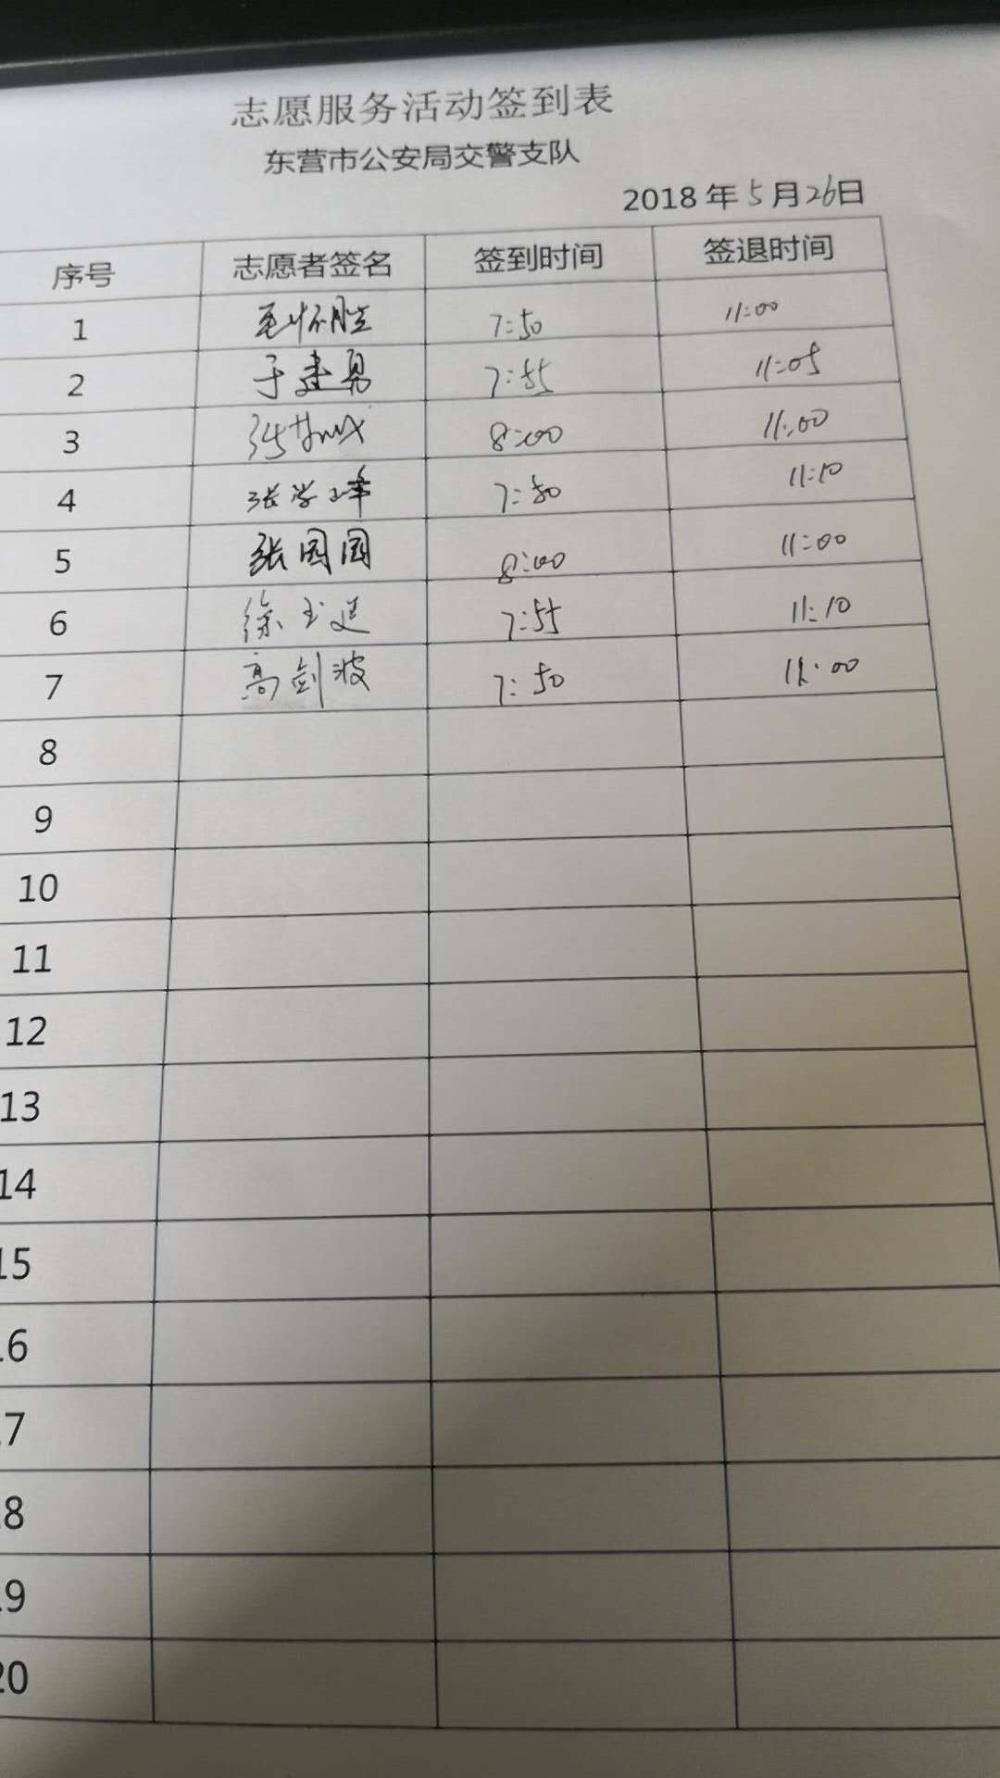 志愿服务活动签到表
东营市公安局交警支队
2018年5月26日
序号 志愿者签名 签到时间 签退时间
1 毛怀胜 7:50 11:00
2 于建勇 7:55 11:05
3 8:00 11:00
4 张学峰 7:50 11:10
5 张园园 8:00 11:00
6 徐玉廷 7:55 11:10
7 高剑波 7:50 11:00
8
9
10
11
12
13
14
15
16
17
18
19
20